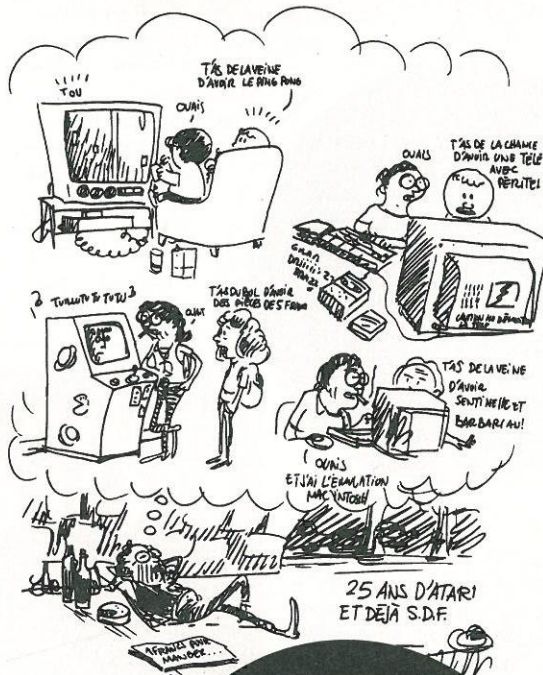 TOU
OUAIS
T'AS DE LA VEINE
D'AVOIR LE PING PONG
OUAIS
T'AS DE LA CHANCE
D'AVOIR UNE TÉLÉ
AVEC
PÉRITEL
TUTU
OUAI
T'AS DU BOL D'AVOIR
DES PIÈCES DE 5 FRANCS
T'AS DE LA VEINE
D'AVOIR
SENTINELLE ET
BARBARIAN!
OUAIS
ET J'AI L'ÉMULATION
MACYNTOSH
25 ANS D'ATARI
ET DÉJÀ S.D.F.
1 FRANCS POUR
MANGER...